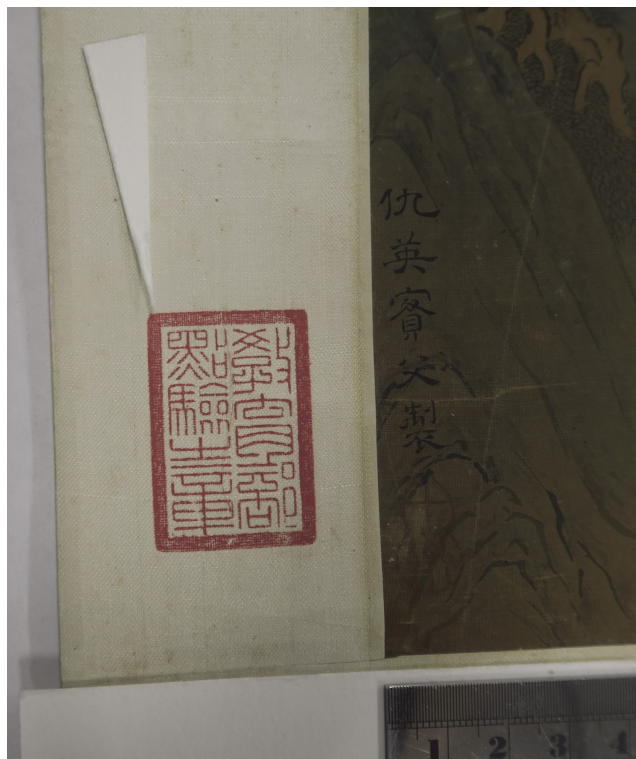 仇英實父製
教育部
點驗之章
1 2 3 4